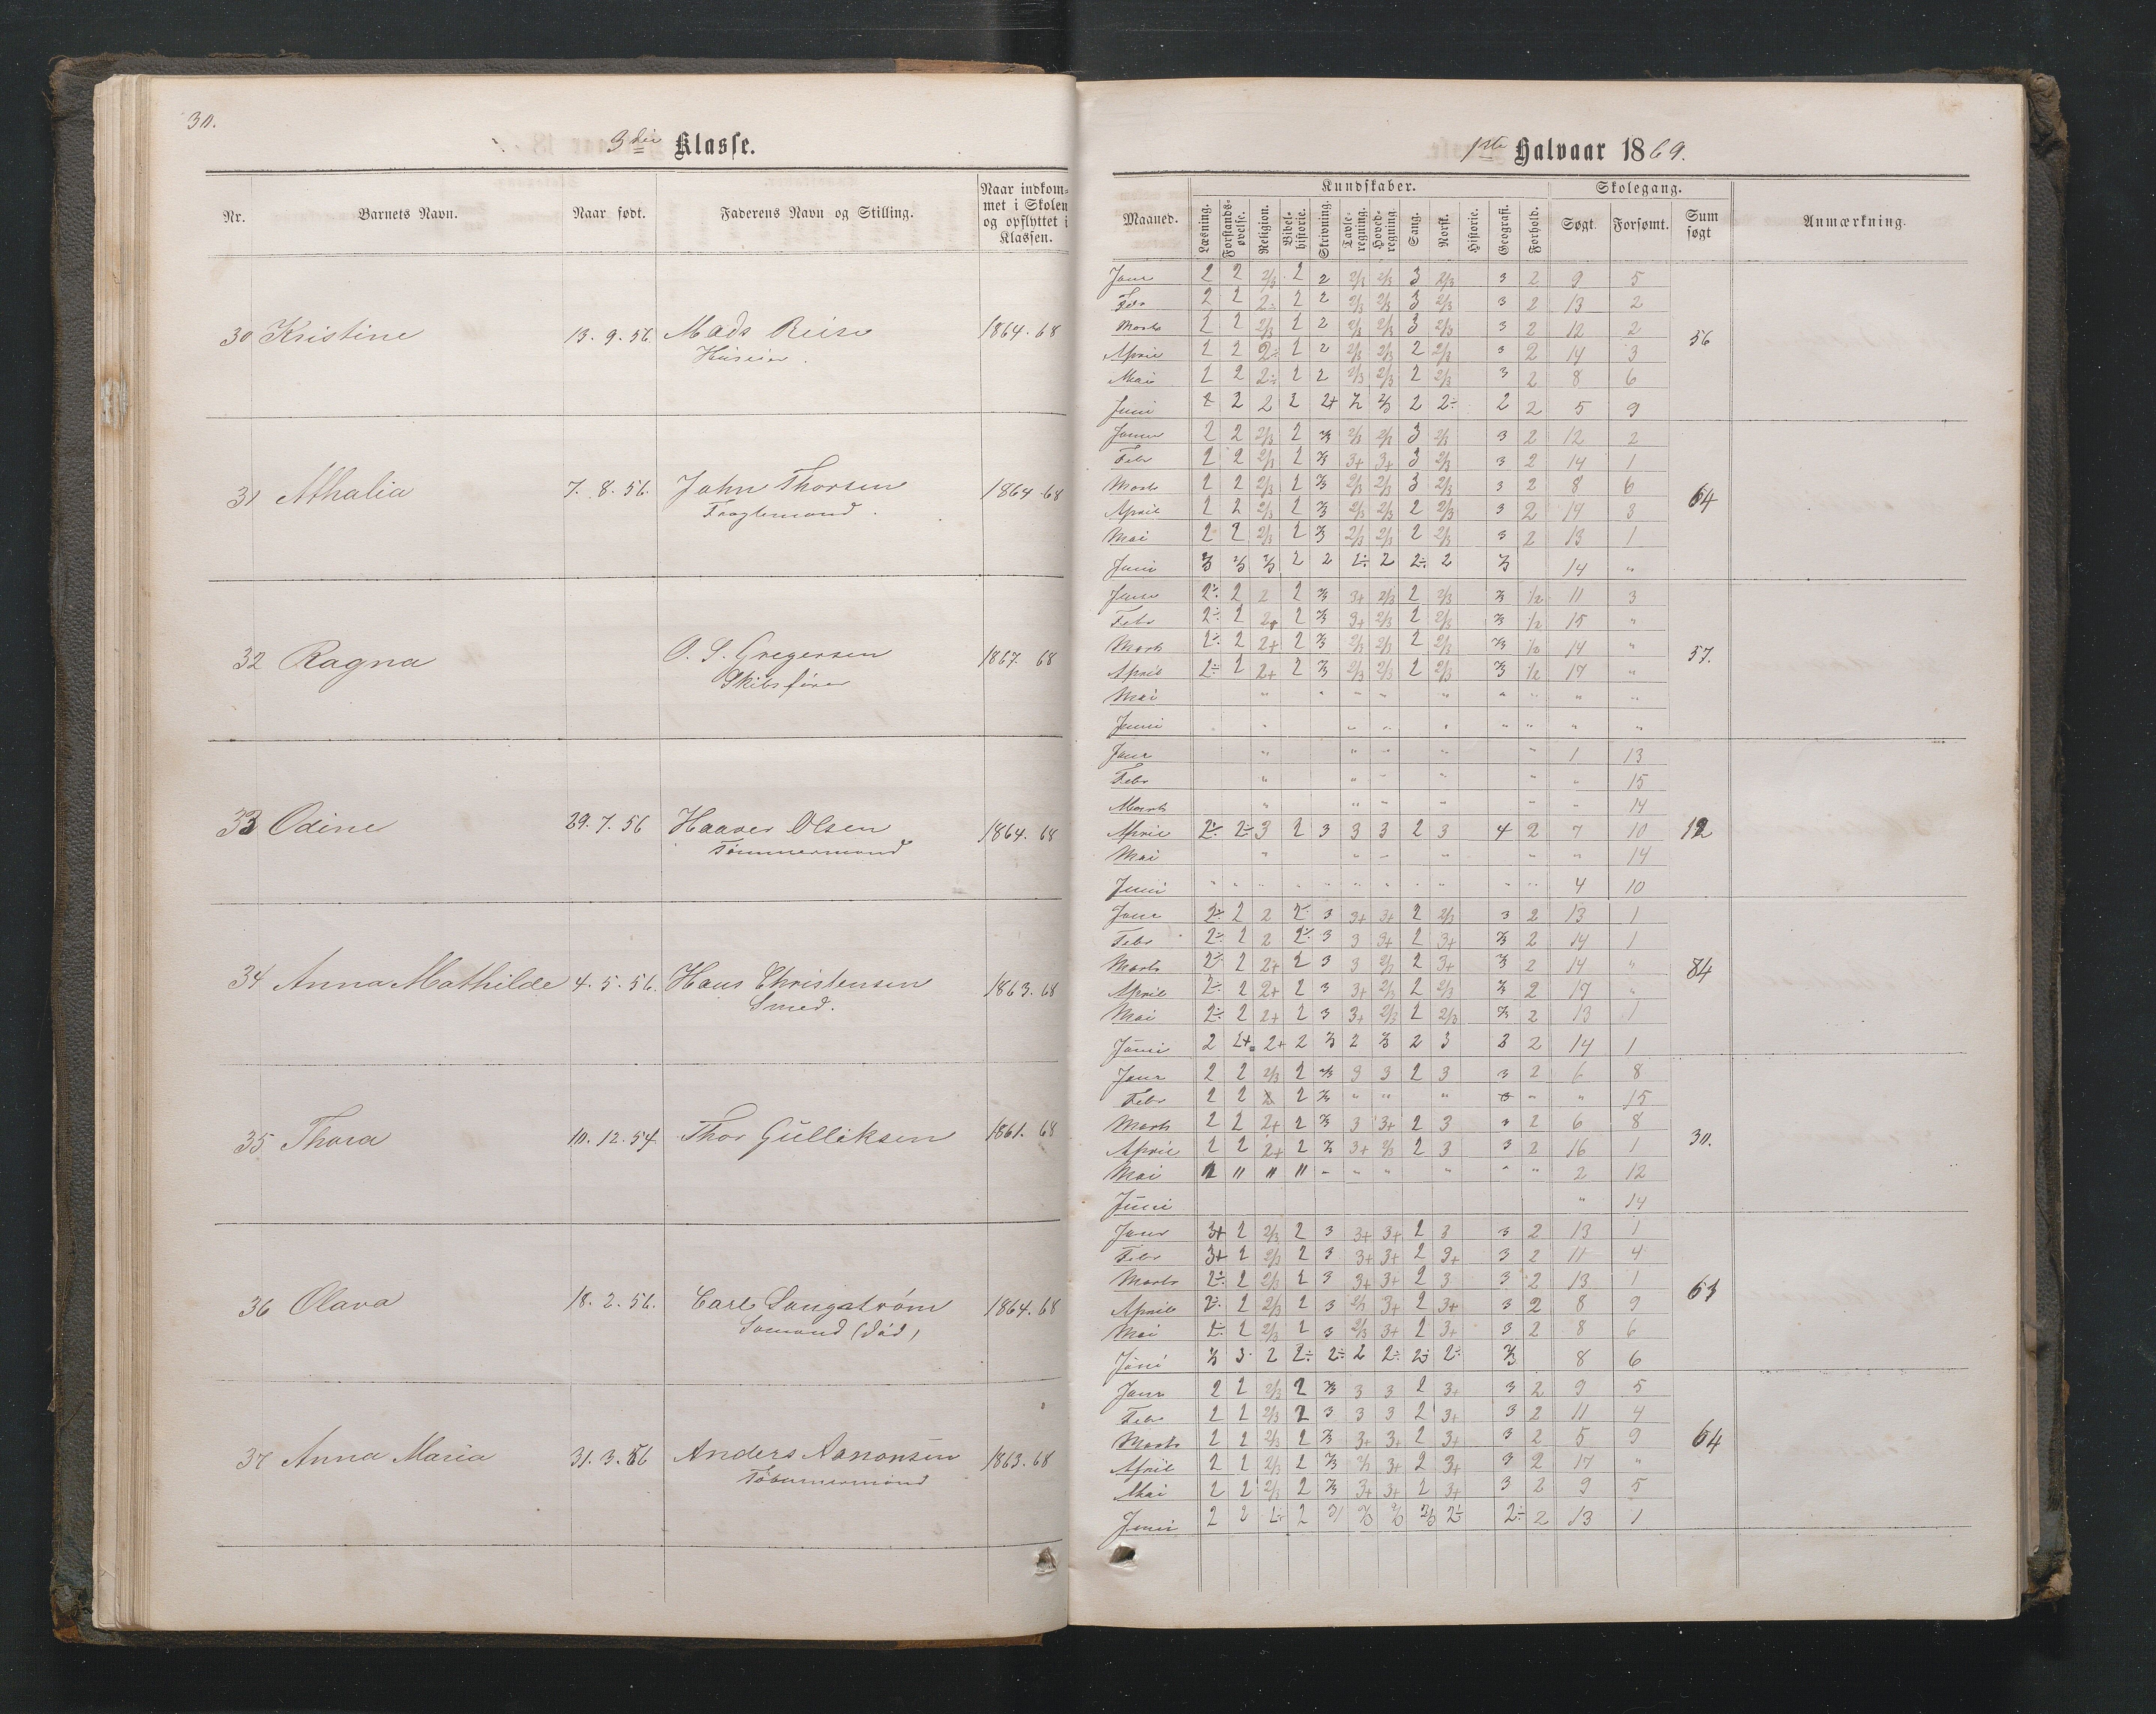 30.
3die Klasse.
Nr. Barnets Navn. Naar født. Faderens Navn og Stilling. Naar indkommet i Skolen og opflyttet i Klassen.
30 Kristine 13. 9. 56 Mads Reise 1864. 68
Huseier.
31 Athalia 7. 8. 56. John Thorsen 1864. 68
32 Ragna O. S. Gregersen 1867. 68
Skibsfører
33 Odine 29. 7. 56 Haaver Olsen 1864. 68
Tømmermand
34 Anna Mathilde 4. 5. 56. Hans Christensen 1863. 68
Smed.
35 Thora 10. 12. 54. Thor Gulliksen 1861. 68
36 Olava 18. 2. 56. Carl Langstrøm 1864. 68
Sømand (død)
37 Anna Maria 31. 3. 56 Anders Aanonsen 1863. 68
Tømmermand
1ste Halvaar 1869.
Kundskaber. Skolegang.
Maaned. Læsning. Forstandsøvelse. Religion. Bibelhistorie. Skrivning. Tavleregning. Hovedregning. Sang. Norsk. Historie. Geografi. Forhold. Søgt. Forsømt. Sum søgt Anmærkning.
Janr 2 2 2/3 2 2 2/3 2/3 3 2/3 3 2 9 5
Febr 2 2 2÷ 2 2 2/3 2/3 3 2/3 3 2 13 2
Marts 2 2 2/3 2 2 2/3 2/3 3 2/3 3 2 12 2
56
April 2 2 2÷ 2 2 2/3 2/3 2 2/3 3 2 14 3
Mai 2 2 2÷ 2 2 2/3 2/3 2 2/3 3 2 8 6
Juni 2 2 2 2 2+ 2/3 2/3 2 2÷ 2 2 5 9
Janr 2 2 2/3 2 2/3 2/3 2/3 3 2/3 3 2 12 2
Febr 2 2 2/3 2 2/3 3+ 3+ 3 2/3 3 2 14 1
Marts 2 2 2/3 2 2/3 2/3 2/3 3 2/3 3 2 8 6
64
April 2 2 2/3 2 2/3 2/3 2/3 2 2/3 3 2 14 3
Mai 2 2 2/3 2 2/3 2/3 2/3 2 2/3 3 2 13 1
Juni 2/3 2/3 2/3 2 2 2÷ 2 2÷ 2 2/3 14 "
Janr 2÷ 2 2 2 2/3 3+ 2/3 2 2/3 2/3 1/2 11 3
Febr 2÷ 2 2+ 2 2/3 3+ 2/3 2 2/3 2/3 1/2 15 "
Marts 2÷ 2 2+ 2 2/3 2/3 2/3 2 2/3 2/3 1/2 14 "
57.
April 2÷ 2 2+ 2 2/3 2/3 2/3 2 2/3 2/3 1/2 17 "
Mai " " " " " " " " "
Juni " " " " " " " "
Janr " " " " " 1 13
Febr " " " " " " 15
Marts " " " " " " 14
April 2÷ 2÷ 3 2 3 3 3 2 3 4 2 7 10 12
Mai " " " " " " 14
Juni " " " " " " " " " " " 4 10
Janr 2÷ 2 2 2÷ 3 3+ 3+ 2 2/3 3 2 13 1
Febr 2÷ 2 2 2÷ 3 3 3+ 2 3+ 2/3 2 14 1
Marts 2÷ 2 2+ 2 3 3 2/3 2 3+ 2/3 2 14 "
84
April 2÷ 2 2+ 2 3 3+ 2/3 2 2/3 2/3 2 17 "
Mai 2÷ 2 2+ 2 3 3+ 2/3 2 2/3 2/3 2 13 1
Juni 2 2+ 2+ 2 2/3 2 2/3 2 3 3 2 14 1
Janr 2 2 2/3 2 2/3 3 3 2 3 3 2 6 8
Febr 2 2 2 2 2/3 " " " 3 " " 15
Marts 2 2 2+ 2 2/3 3 3+ 2 3 3 2 6 8
30.
April 2 2 2+ 2 2/3 3+ 2/3 2 3 3 2 16 1
Mai 2 " " " " " " " " " 2 12
Juni " 14
Janr 3+ 2 2/3 2 3 3+ 3+ 2 3 3 2 13 1
Febr 3+ 2 2/3 2 3 3+ 3+ 2 3+ 3 2 11 4
Marts 2÷ 2 2/3 2 3 3+ 3+ 2 3 3 2 13 1
61
April 2÷ 2 2/3 2 3 2/3 3+ 2 3+ 3 2 8 9
Mai 2÷ 2 2/3 2 3 2/3 3+ 2 3+ 3 2 8 6
Juni 2/3 3 2 2÷ 2÷ 2 2÷ 2÷ 2÷ 2/3 8 6
Janr 2 2 2/3 2 2/3 3 3 2 3+ 3 2 9 5
Febr 2 2 2/3 2 3 3 3 2 3+ 3 2 11 4
Marts 2 2 2/3 2 2/3 3+ 3+ 2 3+ 3 2 5 9
64
April 2 2 2/3 2 2/3 2/3 3+ 2 3+ 3 2 17 "
Mai 2 2 2/3 2 2/3 3+ 3+ 2 3+ 3 2 9 5
Juni 2 2 2÷ 2 2/3 2/3 2/3 2÷ 2÷ 2 13 1